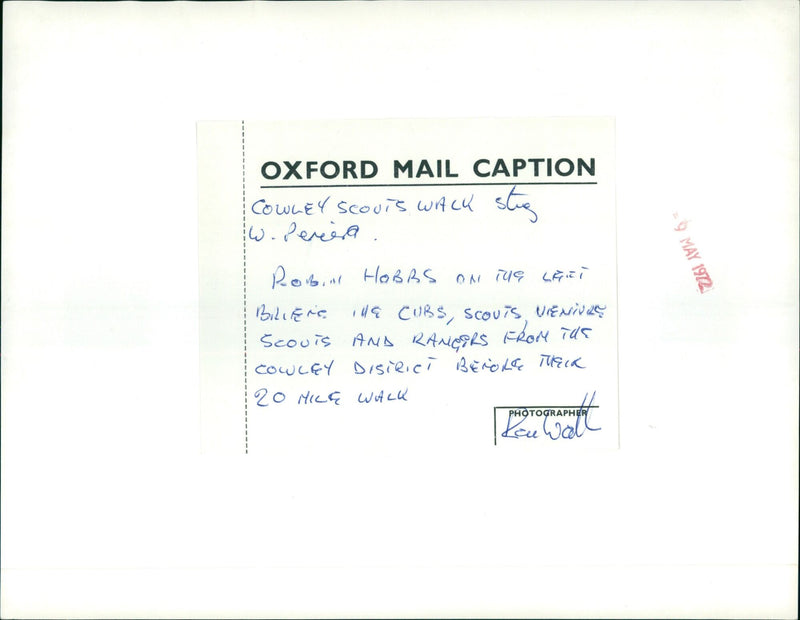 OXFORD MAIL CAPTION
COWLEY SCOUTS WALK
W.
ROBIN HOBBS ON THE LEFT
BRIEFS THE CUBS, SCOUTS, VENTURE
SCOUTS AND RANGERS FROM THE
COWLEY DISTRICT BEFORE THEIR
20 MILE WALK
PHOTOGRAPHER
Ken Wall
9 MAY 1972